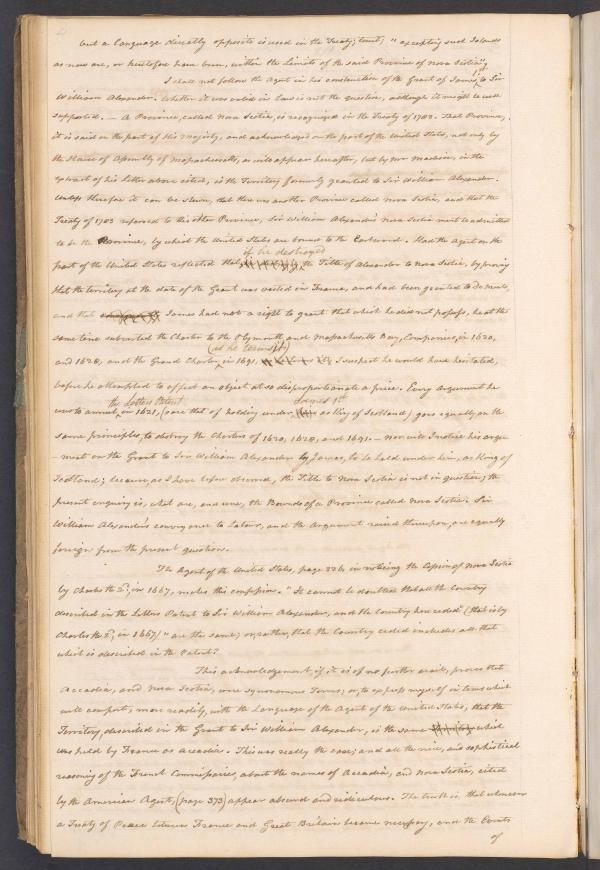 but a Language directly opposite is used in the Treaty; to wit, "excepting such Islands
as now are, or heretofore have been, within the Limits of the said Province of Nova Scotia";
I shall not follow the Agent in his construction of the Grant of James 1st to Sir
William Alexander. Whether it was valid in Law is not the question, although it might be well
supported. – A Province, called Nova Scotia, is recognized in the Treaty of 1783. That Province,
it is said on the part of His Majesty, and acknowledged on the part of the United States, not only by
the House of Assembly of Massachusetts, as will appear hereafter, but by mr Madison, in the
extract of his Letter above cited, is the Territory formerly granted to Sir William Alexander.
Unless therefore it can be shewn, that there was another Province called Nova Scotia, and that the
Treaty of 1783 referred to this other Province, Sir William Alexander's Nova Scotia must be admitted
to be the Province, by which the United States are bound to the Eastward. Had the Agent on the
if he destroyed
part of the United States reflected that, the Title of Alexander to Nova Scotia, by proving
that the territory at the date of the Grant was vested in France, and had been granted to De Monts,
and that James had not a right to grant that which he did not possess, he at the
same time subverted the Charter to the Plymouth and Massachusetts Bay, Companies, in 1620,
(as he terms it)
and 1628, and the Grand Charter, in 1691, I suspect he would have hesitated,
before he attempted to effect an object at so disproportionate a price. Every argument he
the Letters Patent James 1st
uses to annul, in 1621, (save that of holding under as King of Scotland) goes equally on the
same principles, to destroy the Charters of 1620, 1628, and 1691. – nor will I notice his argu-
-ment on the Grant to Sir William Alexander by James, to be held under him, as King of
Scotland; because, as I have before observed, the Title to Nova Scotia is not in question; the
present enquiry is, what are, and were, the Bounds of a Province called Nova Scotia. Sir
William Alexander's conveyance to Latour, and the Argument raised thereupon, are equally
foreign from the present question.
The Agent of the United States, page 226 in noticing the Cession of Nova Scotia
by Charles the 2d, in 1667, makes this confession. "It cannot be doubted that all the Country
described in the Letters Patent to Sir William Alexander, and the Country here ceded" (that is by
Charles the 2d, in 1667) "are the same; or, rather, that the Country ceded includes all that
which is described in the Patent."
This acknowledgement, if it is of no further avail, proves that
Accadia, and Nova Scotia, were synonomous Terms; or, to express myself in terms which
will comport, more readily, with the Language of the Agent of the United States, that the
Territory, described in the Grant to Sir William Alexander, is the same which
was held by France as Accadia. This was really the case; and all the nice, and sophistical
reasoning of the French Commissaries, about the names of Accadia, and Nova Scotia, cited
by the American Agent, (page 373) appear absurd and ridiculous. The truth is, that whenever
a Treaty of Peace between France and Great Britain became necessary, and the Courts
of